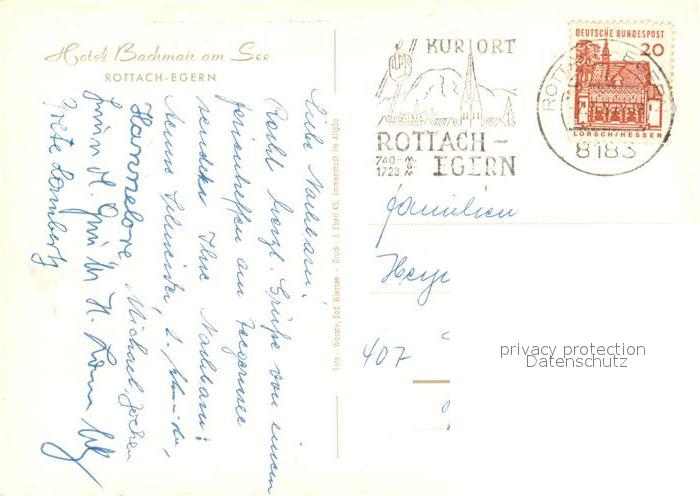 Hotel Bachmair am See
ROTTACH-EGERN
Liebe Nachbarn!
Recht herzl. Grüße von einem
Ferientreffen am Tegernsee
sendet Ihre Nachbarn!
Hannelore, Michael, Jochen
Grete Lambertz
Foto: Wassow, Bad Wiessee - Druck: J. Eberl KG, Immenstadt im Allgäu
KURORT
ROTTACH-
EGERN
740-
1723 m
DEUTSCHE BUNDESPOST
20
LORSCH/HESSEN
8183
Familien
Hey
407
privacy protection
Datenschutz